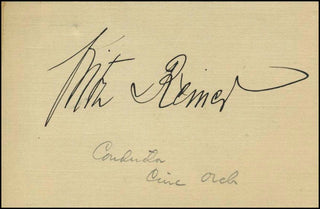 Fritz Reiner
Conductor
Civic Orch